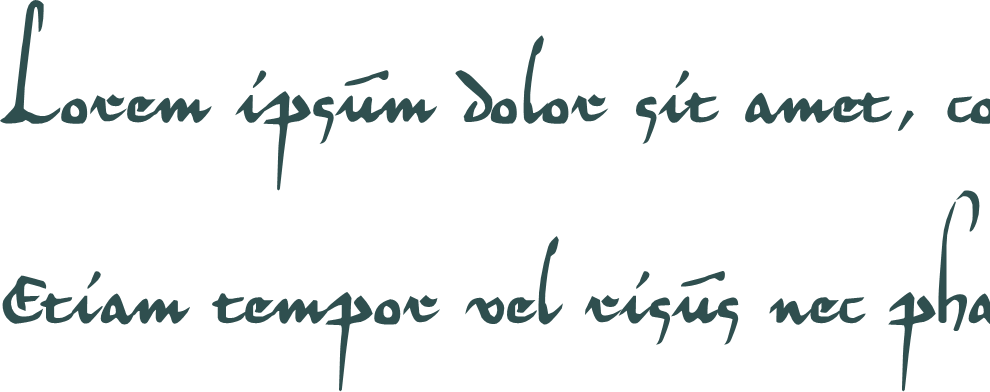 Lorem ipsūm dolor sit amet, co
Etiam tempor vel risūs nec pha